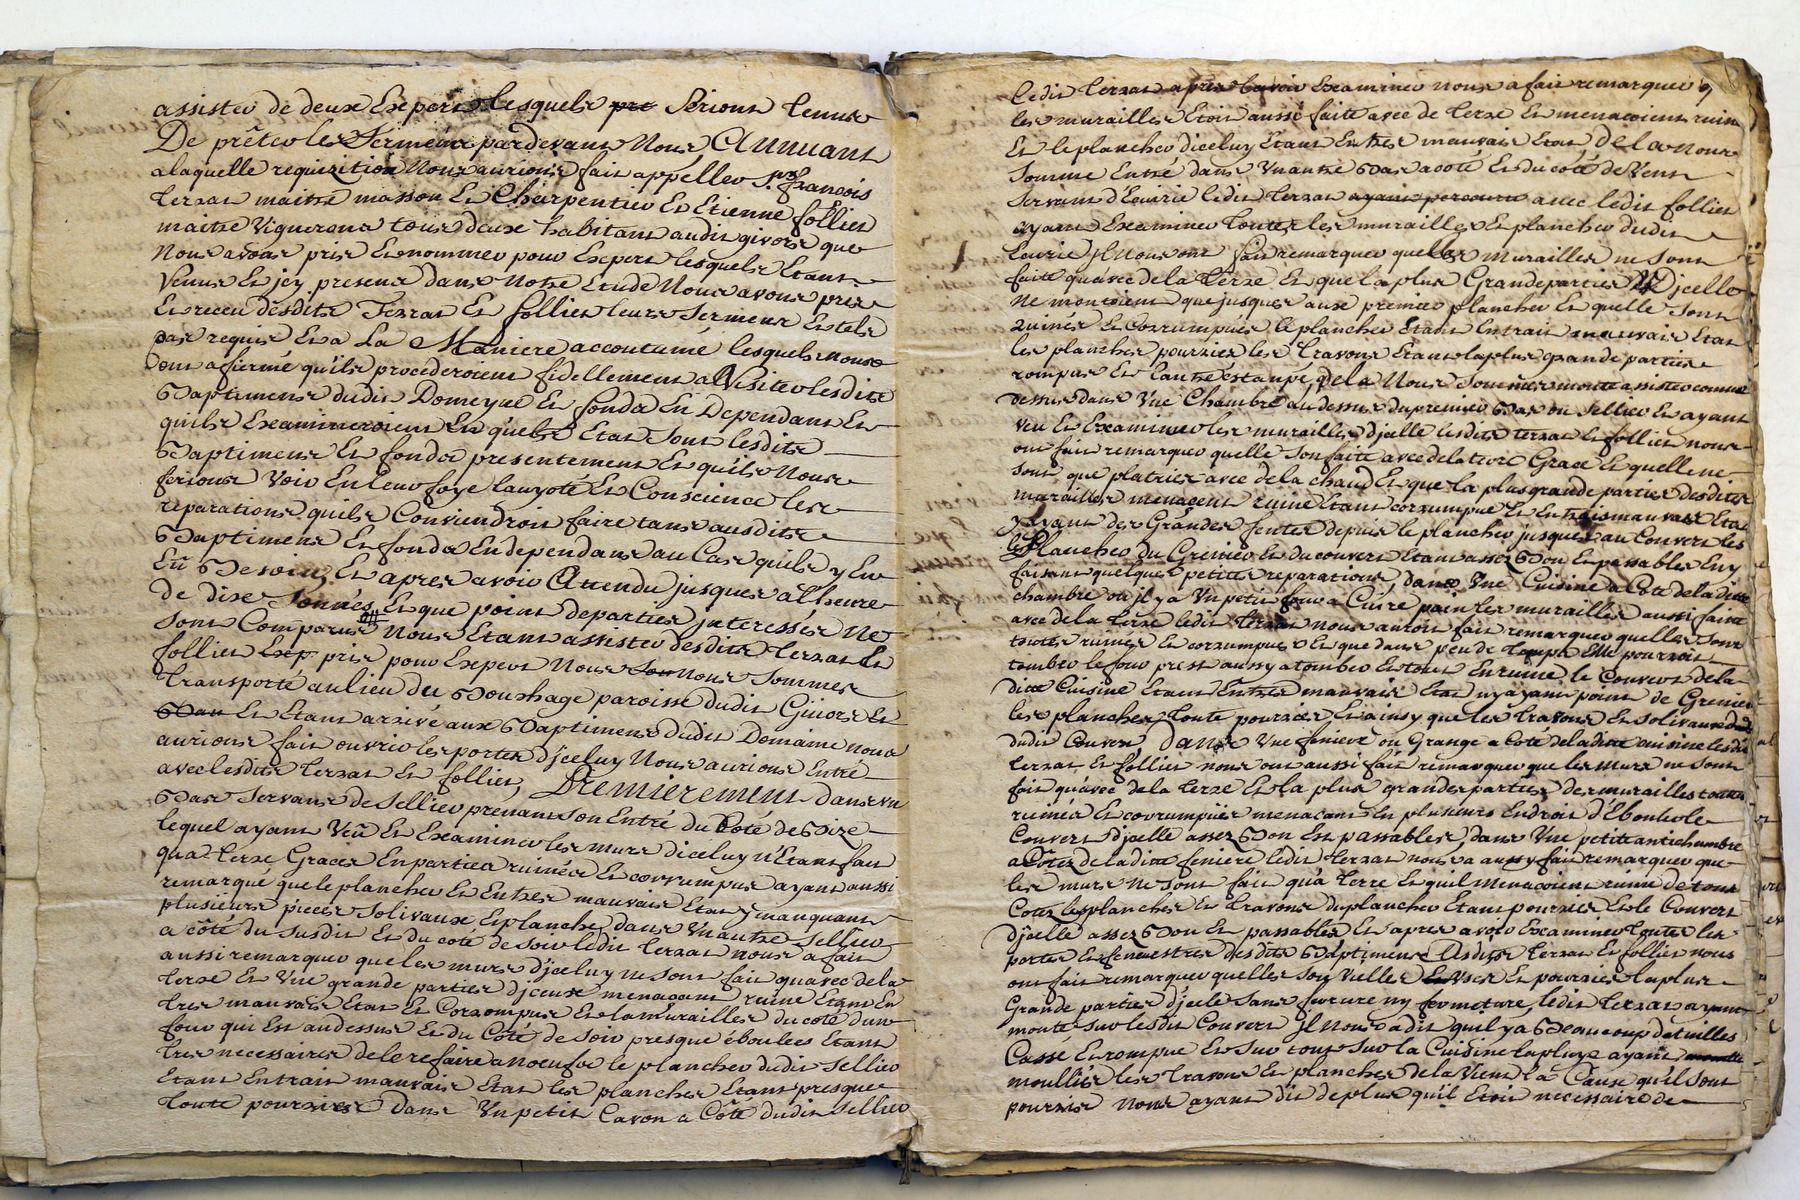 assister de deux Experts lesquels pre Serions tenus
De prêter les Serment pardevant Nous Annuant
alaquelle requizition Nous aurions fait appeller Sr. françois
terrat maitre masson Et Charpentier Et Etienne follier
maitre Vigneron tous deux habitant audit givors que
Nous avons pris Et nommer pour Expert lesquels Etant
Venus Et jcy presens dans Notre Etude Nous avons pris
Et receu desdits Terrat Et follier leurs Serment Et tels
par requis Et a La Maniere accoutumé lesquels nous
ont afiermé quils procederoient fidellement a Visiter lesdits
Baptimens dudit Domeyne Et fonds En Dependant Et
quils Examineroient En quels Etat Sont lesdits
Baptimens Et fonds presentement Et quils Nous
ferions Voir En leur foye lauyoté Et Conscience les
reparations quils Conviendroit faire tans ausdits
Baptimens Et fonds En dependans au Cas quils y En
Eû Besoin, Et apres avoir Attendu jusques a l'heure
de dixe Sonnés Et que point de parties jnteresses Ne
Sont Comparus Nous Etant assister desdits terrat Et
follier Exp pris pour Expert Nous Son Nous Sommes
transporté au lieu du Bouchage paroisse dudit Givors Et
Ban Et Etant arrivé aux Baptimens dudit Domaine nous
aurions fait ouvrir les portes djceluy Nous aurions Entré
avec lesdits terrat Et follier, Premierement dans un
Bas Servans de Sellier prenant Son Entré du Coté de Bize
lequel ayant Veû Et Examiner les murs diceluy n'Etant fait
qua terre Grace En partie ruinée Et corrumpus ayant aussi
remarqué que le plancher Et Entres mauvais Etat y manquant
plusieurs pieces Solivaux Et planches dans Un autre Sellier
a côté du Susdit Et du coté de Soir ledit terrat nous a fait
aussi remarquer que les murs djceluy ne Sont fait quavec de la
terre Et Une grande parties djceux menaçant ruine Etant En
tres mauvais Etat Et Corrompus Et la murailles du coté dun
four qui Est au dessus Et du Côté de Soir presque éboulees Etant
tres necessaires de le refaire a Noeufve le plancher dudit Sellier
Etant En trait mauvais Etat les planches Etant presque
toute pourries dans Un petit Cavon a Côté dudit Sellier
ledit terrat apres lavoir Examiner nous a fait remarquer q
les murailles Etoit aussi faite avec de terre Et menacoient ruine
Et le plancher diceluy Etant En tres mauvais Etat de la nous
Somme Entré dans Un autre Bas a coté Et du côté de Vent
Servant d'Ecuirie ledit terrat ayant parcourû avec ledit follier
ayant Examiner toutes les murailles Et plancher dudit
Ecurie jl Nous ont fait remarquer quelles murailles ne Sont
faite quavec de la terre Et que la plus Grande parties Djcelle
Ne montoient que jusques aux premier plancher Et quelle Sont
Ruinés Et Corrumpues le plancher Etant En trait mauvais Etat
les planches pourries les travons Etant la plus grande parties
rompus Et l'autre éstanpé, de la Nous Sommes monté assister comme
dessus dans Une Chambre au dessus du premier Bas ou Sellier Et ayant
veu Et Examiner les murailles djcelle lesdits terrat Et follier nous
ont fait remarquer quelle Son faite avec de la terre Grace Et quelle ne
Sont que platries avec de la chaud Et que la plus grande parties desdites
murailles menacent ruine Etant corrumpue Et En trais mauvais Etat
y ayant des Grandes fentes depuis le plancher jusques au Couvert les
Plancher du Grenier Et du couvert Etant assez Bon Et passables En y
faisant quelques petites reparations, dans Une Cuisine a Coté de la ditte
chambre ou il y a Un petit four a Cuire pain les murailles aussi faitte
avec de la terre ledit terrat nous auroit fait remarquer quelles Sont
toutes ruines Et corrumpus Et que dans peu de temps Elle pourroit
tomber le four prest aussy a tomber Et tout En ruine le Couvert de la
ditte Cuisine Etant En tres mauvais Etat ny ayant point de Grenier
les planches toute pourries Et ainsy que les travons Et Solivaux
dudit Couvert Dans Une feniere ou Grange a Coté de la ditte cuisine lesdit
terrat Et follier nous ont aussi fait remarquer que les murs ne Sont
fait quavec de la terre Et la plus grande parties des murailles toutes
ruinés Et corrumpües menacant En plusieurs Endroit d'Eboule le
Couvert djcelle assez Bon Et passables, dans Une petitte antichambre
a Cotez de la ditte feniere ledit terrat nous a aussy fait remarquer que
les murs Ne Sont fait qu'a terre Et quil menacoient ruine de tous
Cotez les planches Et travons du plancher Etant pourries Et le Couvert
djcelle assez Bon Et passables Et apres avoir Examiner toutes les
portes Et fenestres desdits Baptimens Lesdits terrat Et follier nous
ont fait remarquer quelles Son Vielles Et Uses Et pourries la plus
Grande parties djcelle Sans ferrure ny fermeture, ledit terrat ayant
monté Sur lesdit Couvert jl nous a dit quil y a Beaucoup de tuilles
Cassé Et rompue Et Sur tous Sur la Cuisine la pluye ayant
moulliés les travons Et planches de la Vient la Cause qu'il Sont
pourris nous ayant dit de plus quil Etoit necessaire de